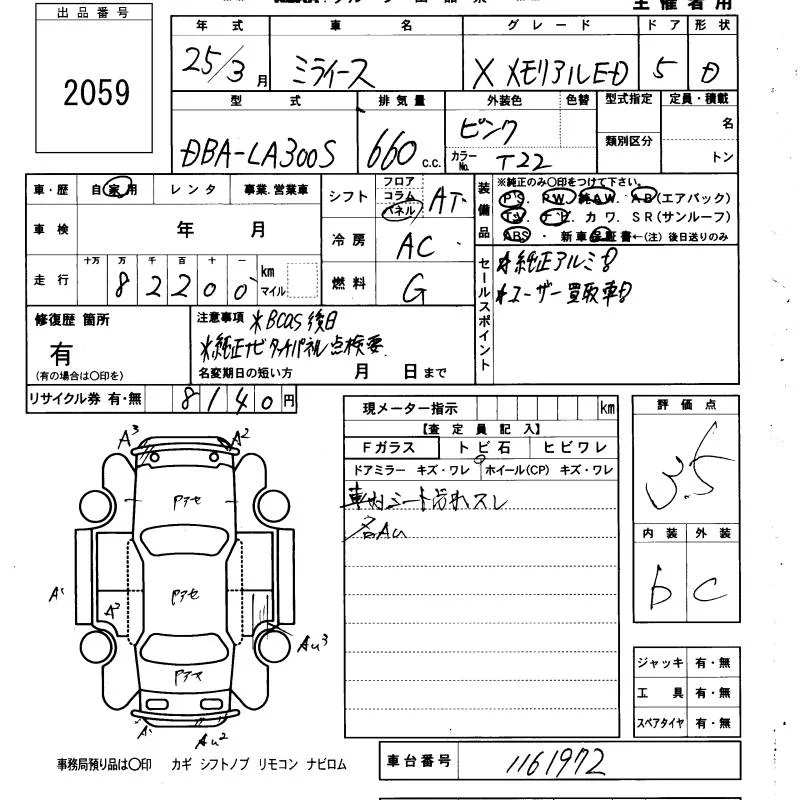 出品番号
主催者用
2059
年 式
車 名
グレード
ドア
形状
25/3月
ミライース
X メモリアルED
5
D
型 式
排気量
外装色
色替
型式指定
定員・積載
DBA-LA300S
660 c.c.
ピンク
カラーNo. T22
類別区分
名
トン
車・歴 自家用 レンタ 事業.営業車
シフト フロア コラム パネル AT
装備品
※純正のみ〇印をつけて下さい。
PS. PW. 純AW. AB(エアバック)
TV. ナビ カワ. SR(サンルーフ)
ABS ・ 新車保証書←(注) 後日送りのみ
車検 年 月
冷房 AC
走行 十万 万 千 百 十 一 km マイル
82200
燃料 G
セールスポイント
*純正アルミ
*ユーザー買取車
修復歴 箇所
有
(有の場合は〇印を)
注意事項 *BCAS後日
*純正ナビタッチパネル点検要
名変期日の短い方 月 日まで
リサイクル券 有・無 8140円
現メーター指示 km
【査定員記入】
Fガラス トビ石 ヒビワレ
ドアミラー キズ・ワレ ホイール(CP) キズ・ワレ
車内シート汚れスレ
各AU
評価点
3.5
内装 外装
b C
A3
A2
Pアセ
Pアセ
Pアセ
A1
A2
AU3
A1
AU2
ジャッキ 有・無
工具 有・無
スペアタイヤ 有・無
事務局預り品は〇印 カギ シフトノブ リモコン ナビロム
車台番号 1161972